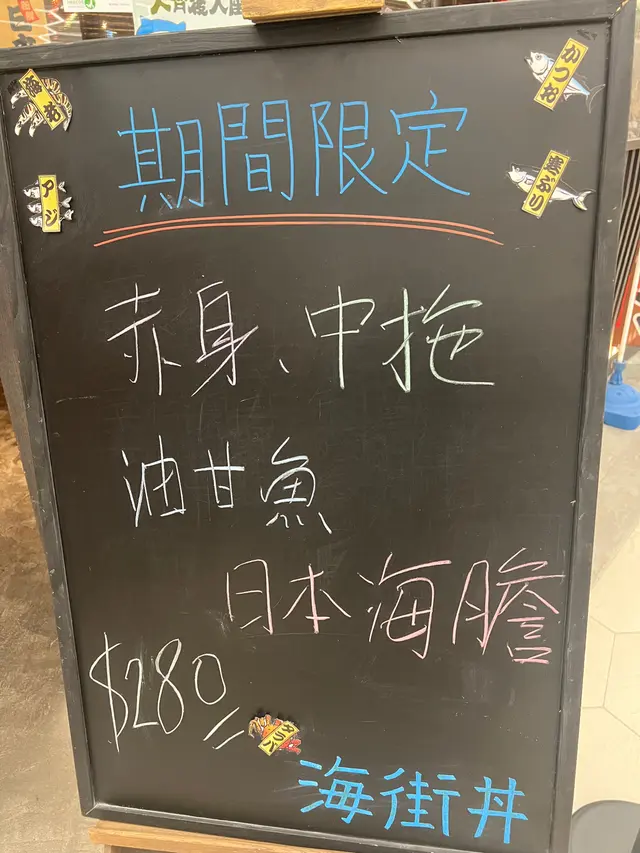 期間限定
かつお
アジ
寒ぶり
赤身、中拖
油甘魚
日本海膽
$280
タラバ
海街丼